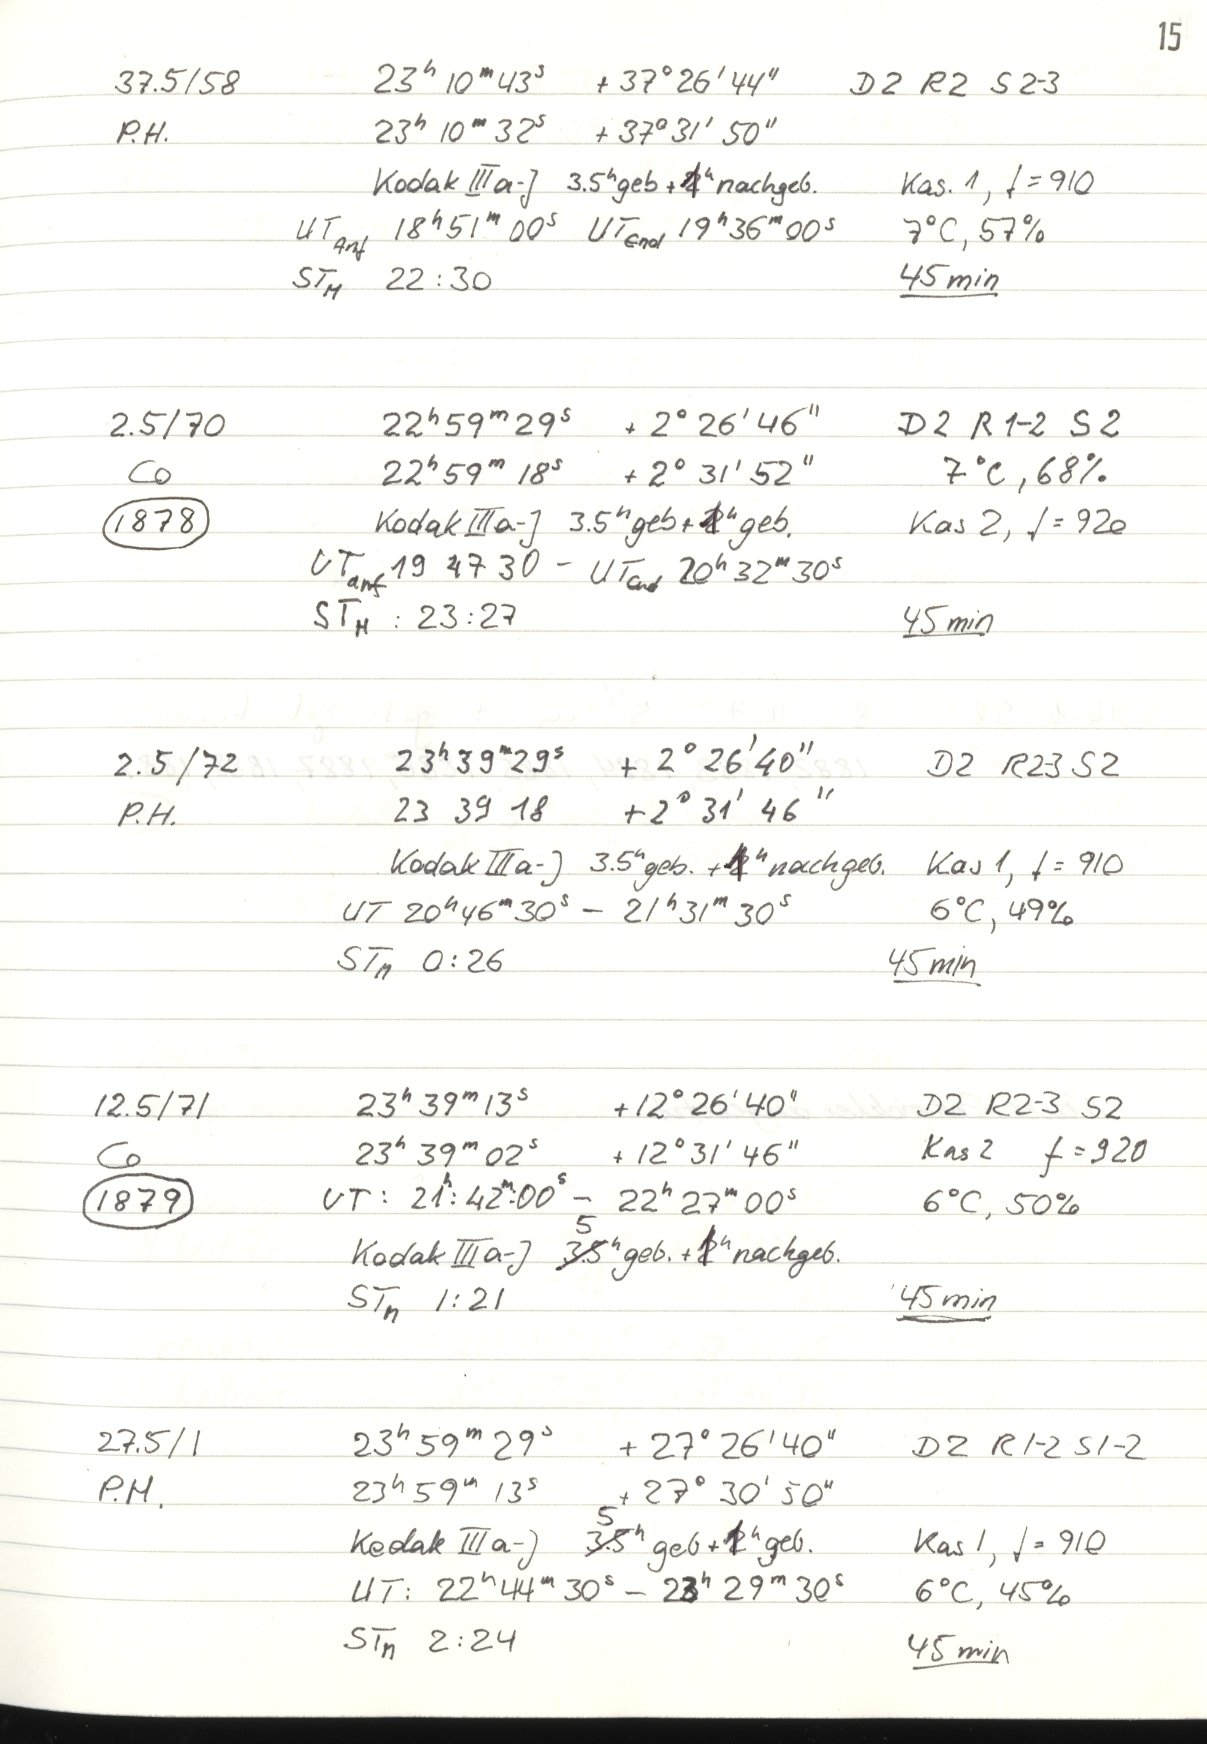 15
37.5/58 23ʰ 10ᵐ 43ˢ + 37° 26' 44" D2 R2 S2-3
P.H. 23ʰ 10ᵐ 32ˢ + 37° 31' 50"
Kodak IIIa-J 3.5ʰ geb + 1ʰ nachgeb. Kas. 1, f = 910
UT Anf 18ʰ 51ᵐ 00ˢ UT End 19ʰ 36ᵐ 00ˢ 7°C, 57%
ST M 22:30 45 min
2.5/70 22ʰ 59ᵐ 29ˢ + 2° 26' 46" D2 R1-2 S2
Co 22ʰ 59ᵐ 18ˢ + 2° 31' 52" 7°C, 68%
1878 Kodak IIIa-J 3.5ʰ geb + 1ʰ geb. Kas 2, f = 920
UT anf 19 47 30 - UT End 20ʰ 32ᵐ 30ˢ
ST M : 23:27 45 min
2.5/72 23ʰ 39ᵐ 29ˢ + 2° 26' 40" D2 R2-3 S2
P.H. 23 39 18 + 2° 31' 46"
Kodak IIIa-J 3.5ʰ geb. + 1ʰ nachgeb. Kas 1, f = 910
UT 20ʰ 46ᵐ 30ˢ - 21ʰ 31ᵐ 30ˢ 6°C, 49%
ST M 0:26 45 min
12.5/71 23ʰ 39ᵐ 13ˢ + 12° 26' 40" D2 R2-3 S2
Co 23ʰ 39ᵐ 02ˢ + 12° 31' 46" Kas 2 f = 920
1879 UT: 21ʰ: 42ᵐ: 00ˢ - 22ʰ 27ᵐ 00ˢ 6°C, 50%
Kodak IIIa-J 3.5 5ʰ geb. + 1ʰ nachgeb.
ST M 1:21 45 min
27.5/1 23ʰ 59ᵐ 29ˢ + 27° 26' 40" D2 R1-2 S1-2
P.H. 23ʰ 59ᵐ 13ˢ + 27° 30' 50"
Kodak IIIa-J 3.5 5ʰ geb + 1ʰ geb. Kas 1, f = 910
UT: 22ʰ 44ᵐ 30ˢ - 23ʰ 29ᵐ 30ˢ 6°C, 45%
ST M 2:24 45 min